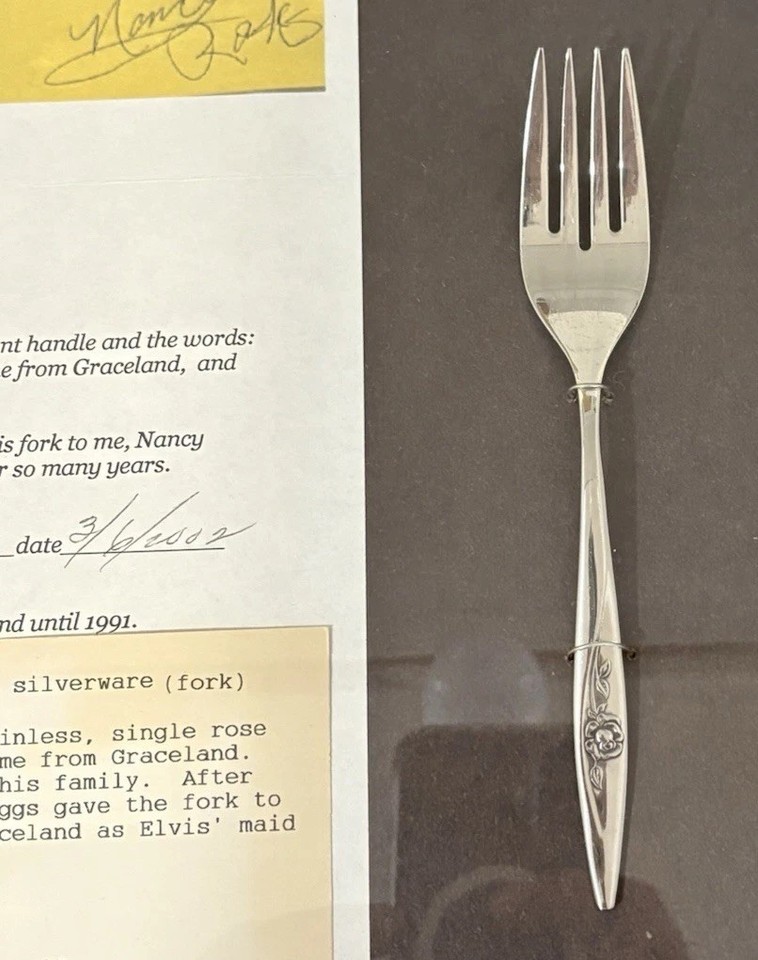 Nancy
Rooks
nt handle and the words:
e from Graceland, and
is fork to me, Nancy
r so many years.
date 3/6/2002
nd until 1991.
silverware (fork)
inless, single rose
me from Graceland.
his family. After
ggs gave the fork to
celand as Elvis' maid